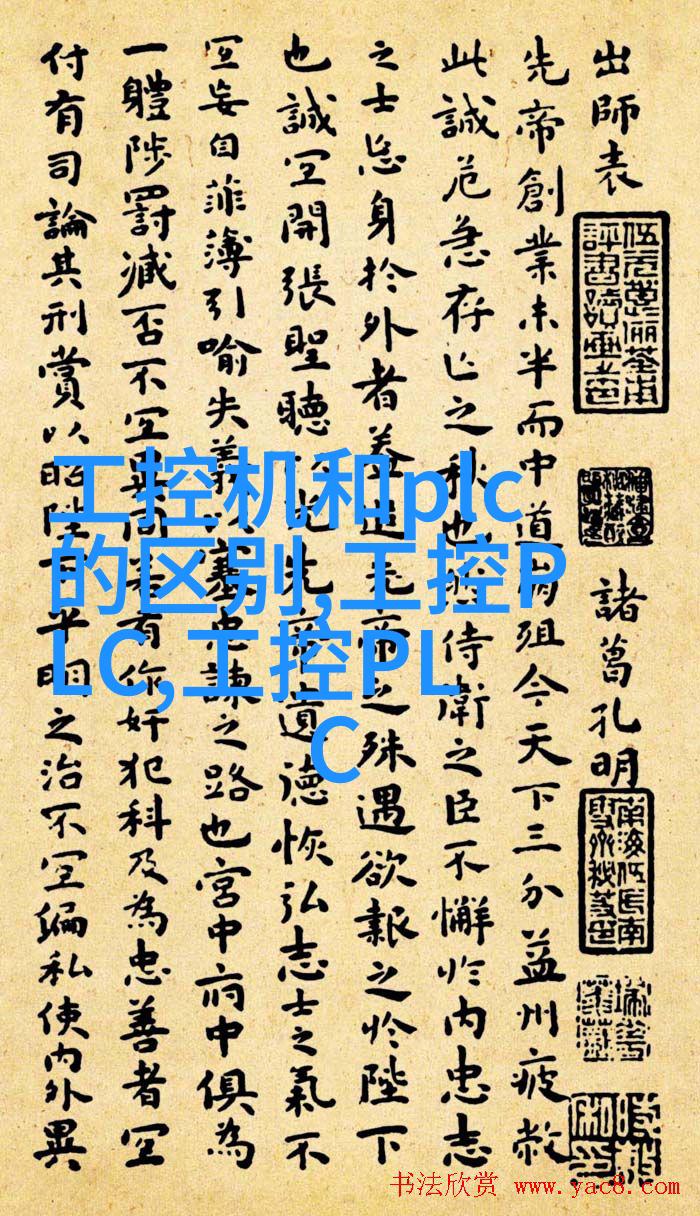 出師表
諸葛孔明
先帝創業未半而中道崩殂今天下三分益州疲敝
此誠危急存亡之秋也然侍衛之臣不懈於内忠志
之士忘身於外者蓋追先帝之殊遇欲報之於陛下
也誠宜開張聖聽以光先帝遺德恢弘志士之氣不
宜妄自菲薄引喻失義以塞忠諫之路也宮中府中俱為
一體陟罰臧否不宜異同若有作奸犯科及為忠善者宜
付有司論其刑賞以昭陛下平明之治不宜偏私使内外異
工控机和plc
的区别,工控P
LC,工控PL
C
书法欣赏 www.yac8.com